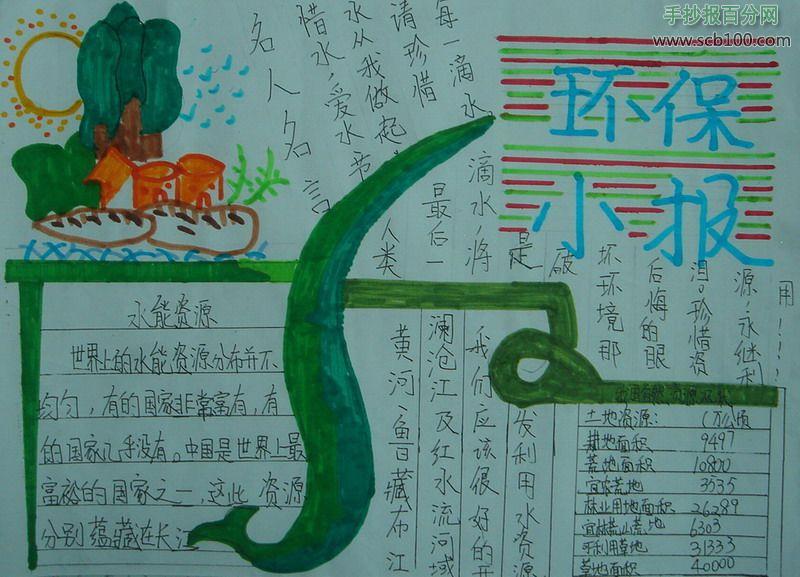 手抄报百分网
www.scb100.com
环保
小报
名人名言
惜水，爱水，节
水从我做起，
请珍惜
每一滴水
人类
最后一
滴水，将
是
破
坏环境那
后悔的眼
泪。珍惜资
源，永继利
用！！！
水能资源
世界上的水能资源分布并不
均匀，有的国家非常富有，有
的国家几乎没有。中国是世界上最
富裕的国家之一，这些资源
分别蕴藏在长江
黄河、鲁藏布江
澜沧江及红水流河域
我们应该很好的开
发利用水资源
土地资源： (万公顷
耕地面积 9497
荒地面积 10800
宜农荒地 3535
林业用地面积 26289
宜林荒山荒地 6303
可利用草地 31333
草地面积 40000